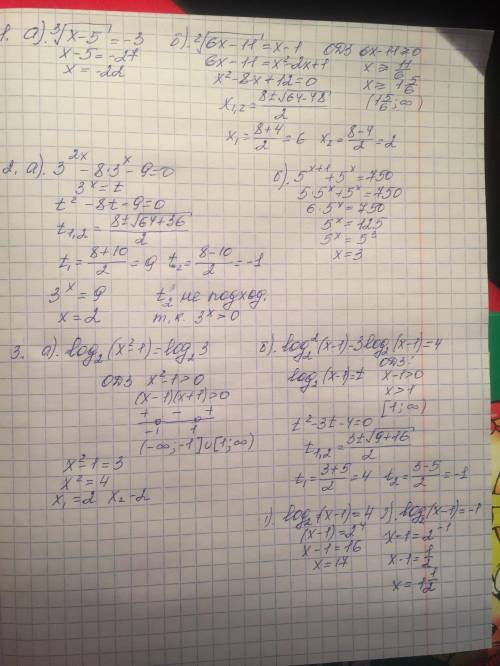 1. а). ³√x-5 = -3
x-5 = -27
x = -22
б). ²√6x-11 = x-1 ОДЗ 6x-11≥0
6x-11 = x²-2x+1 x ≥ 11/6
x²-8x+12=0 x ≥ 1 5/6
x₁,₂ = 8±√64-48 / 2 (1 5/6; ∞)
x₁ = 8+4/2 = 6 x₂ = 8-4/2 = 2
2. а). 3²ˣ - 8·3ˣ - 9 = 0
3ˣ = t
t² - 8t - 9 = 0
t₁,₂ = 8±√64+36 / 2
t₁ = 8+10/2 = 9 t₂ = 8-10/2 = -1
3ˣ = 9 t₂ не подход.
x = 2 т.к. 3ˣ > 0
б). 5ˣ⁺¹ + 5ˣ = 750
5·5ˣ + 5ˣ = 750
6·5ˣ = 750
5ˣ = 125
5ˣ = 5³
x = 3
3. а). log₂(x²-1) = log₂3
ОДЗ x²-1>0
(x-1)(x+1)>0
+ - +
-1 1
(-∞; -1]∪[1; ∞)
x²-1 = 3
x² = 4
x₁ = 2 x₂ -2
б). log₂²(x-1) - 3log₂(x-1) = 4
ОДЗ:
log₂(x-1) = t x-1>0
x>1
[1; ∞)
t² - 3t - 4 = 0
t₁,₂ = 3±√9+16 / 2
t₁ = 3+5/2 = 4 t₂ = 3-5/2 = -1
1). log₂(x-1) = 4 2). log₂(x-1) = -1
(x-1) = 2⁴ x-1 = 2⁻¹
x-1 = 16 x-1 = 1/2
x = 17 x = 1 1/2